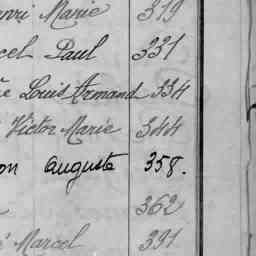 Henri Marie 319
cel Paul 331
Louis Armand 334
Victor Marie 344
on Auguste 358.
362
Marcel 391